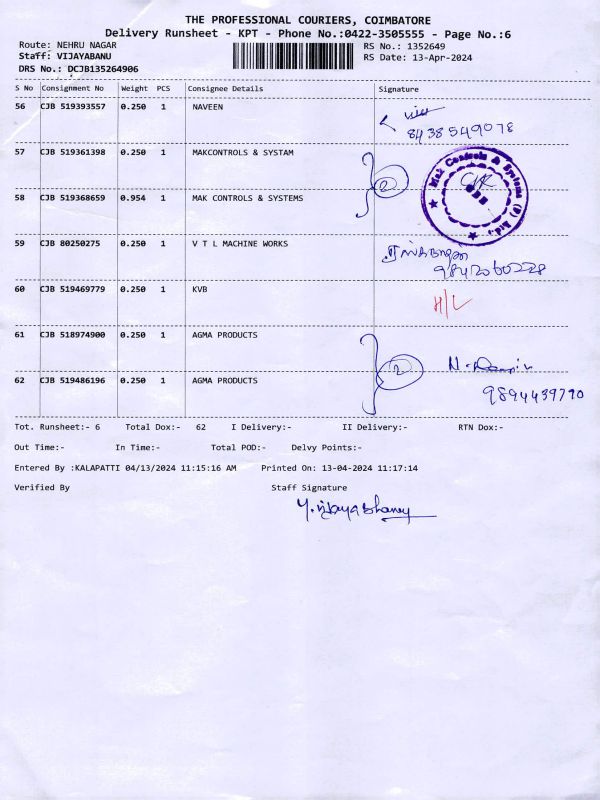 THE PROFESSIONAL COURIERS, COIMBATORE
Delivery Runsheet - KPT - Phone No.:0422-3505555 - Page No.:6
Route: NEHRU NAGAR RS No.: 1352649
Staff: VIJAYABANU RS Date: 13-Apr-2024
DRS No.: DCJB135264906
S No Consignment No Weight PCS Consignee Details Signature
56 CJB 519393557 0.250 1 NAVEEN
8438549078
57 CJB 519361398 0.250 1 MAKCONTROLS & SYSTAM
2
Mak Controls & Systems (P) Ltd.
58 CJB 519368659 0.954 1 MAK CONTROLS & SYSTEMS
59 CJB 80250275 0.250 1 V T L MACHINE WORKS
9842060228
60 CJB 519469779 0.250 1 KVB H/L
61 CJB 518974900 0.250 1 AGMA PRODUCTS
2
62 CJB 519486196 0.250 1 AGMA PRODUCTS
9894439790
Tot. Runsheet:- 6 Total Dox:- 62 I Delivery:- II Delivery:- RTN Dox:-
Out Time:- In Time:- Total POD:- Delvy Points:-
Entered By :KALAPATTI 04/13/2024 11:15:16 AM Printed On: 13-04-2024 11:17:14
Verified By Staff Signature